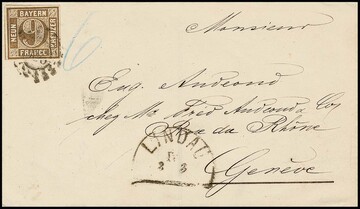 BAYERN
NEUN
KREUZER
FRANCO
6
Monsieur
Eug. Audeoud
chez Mr Fred Audeoud & Co
Rue du Rhône
LINDAU
2 3
Genève